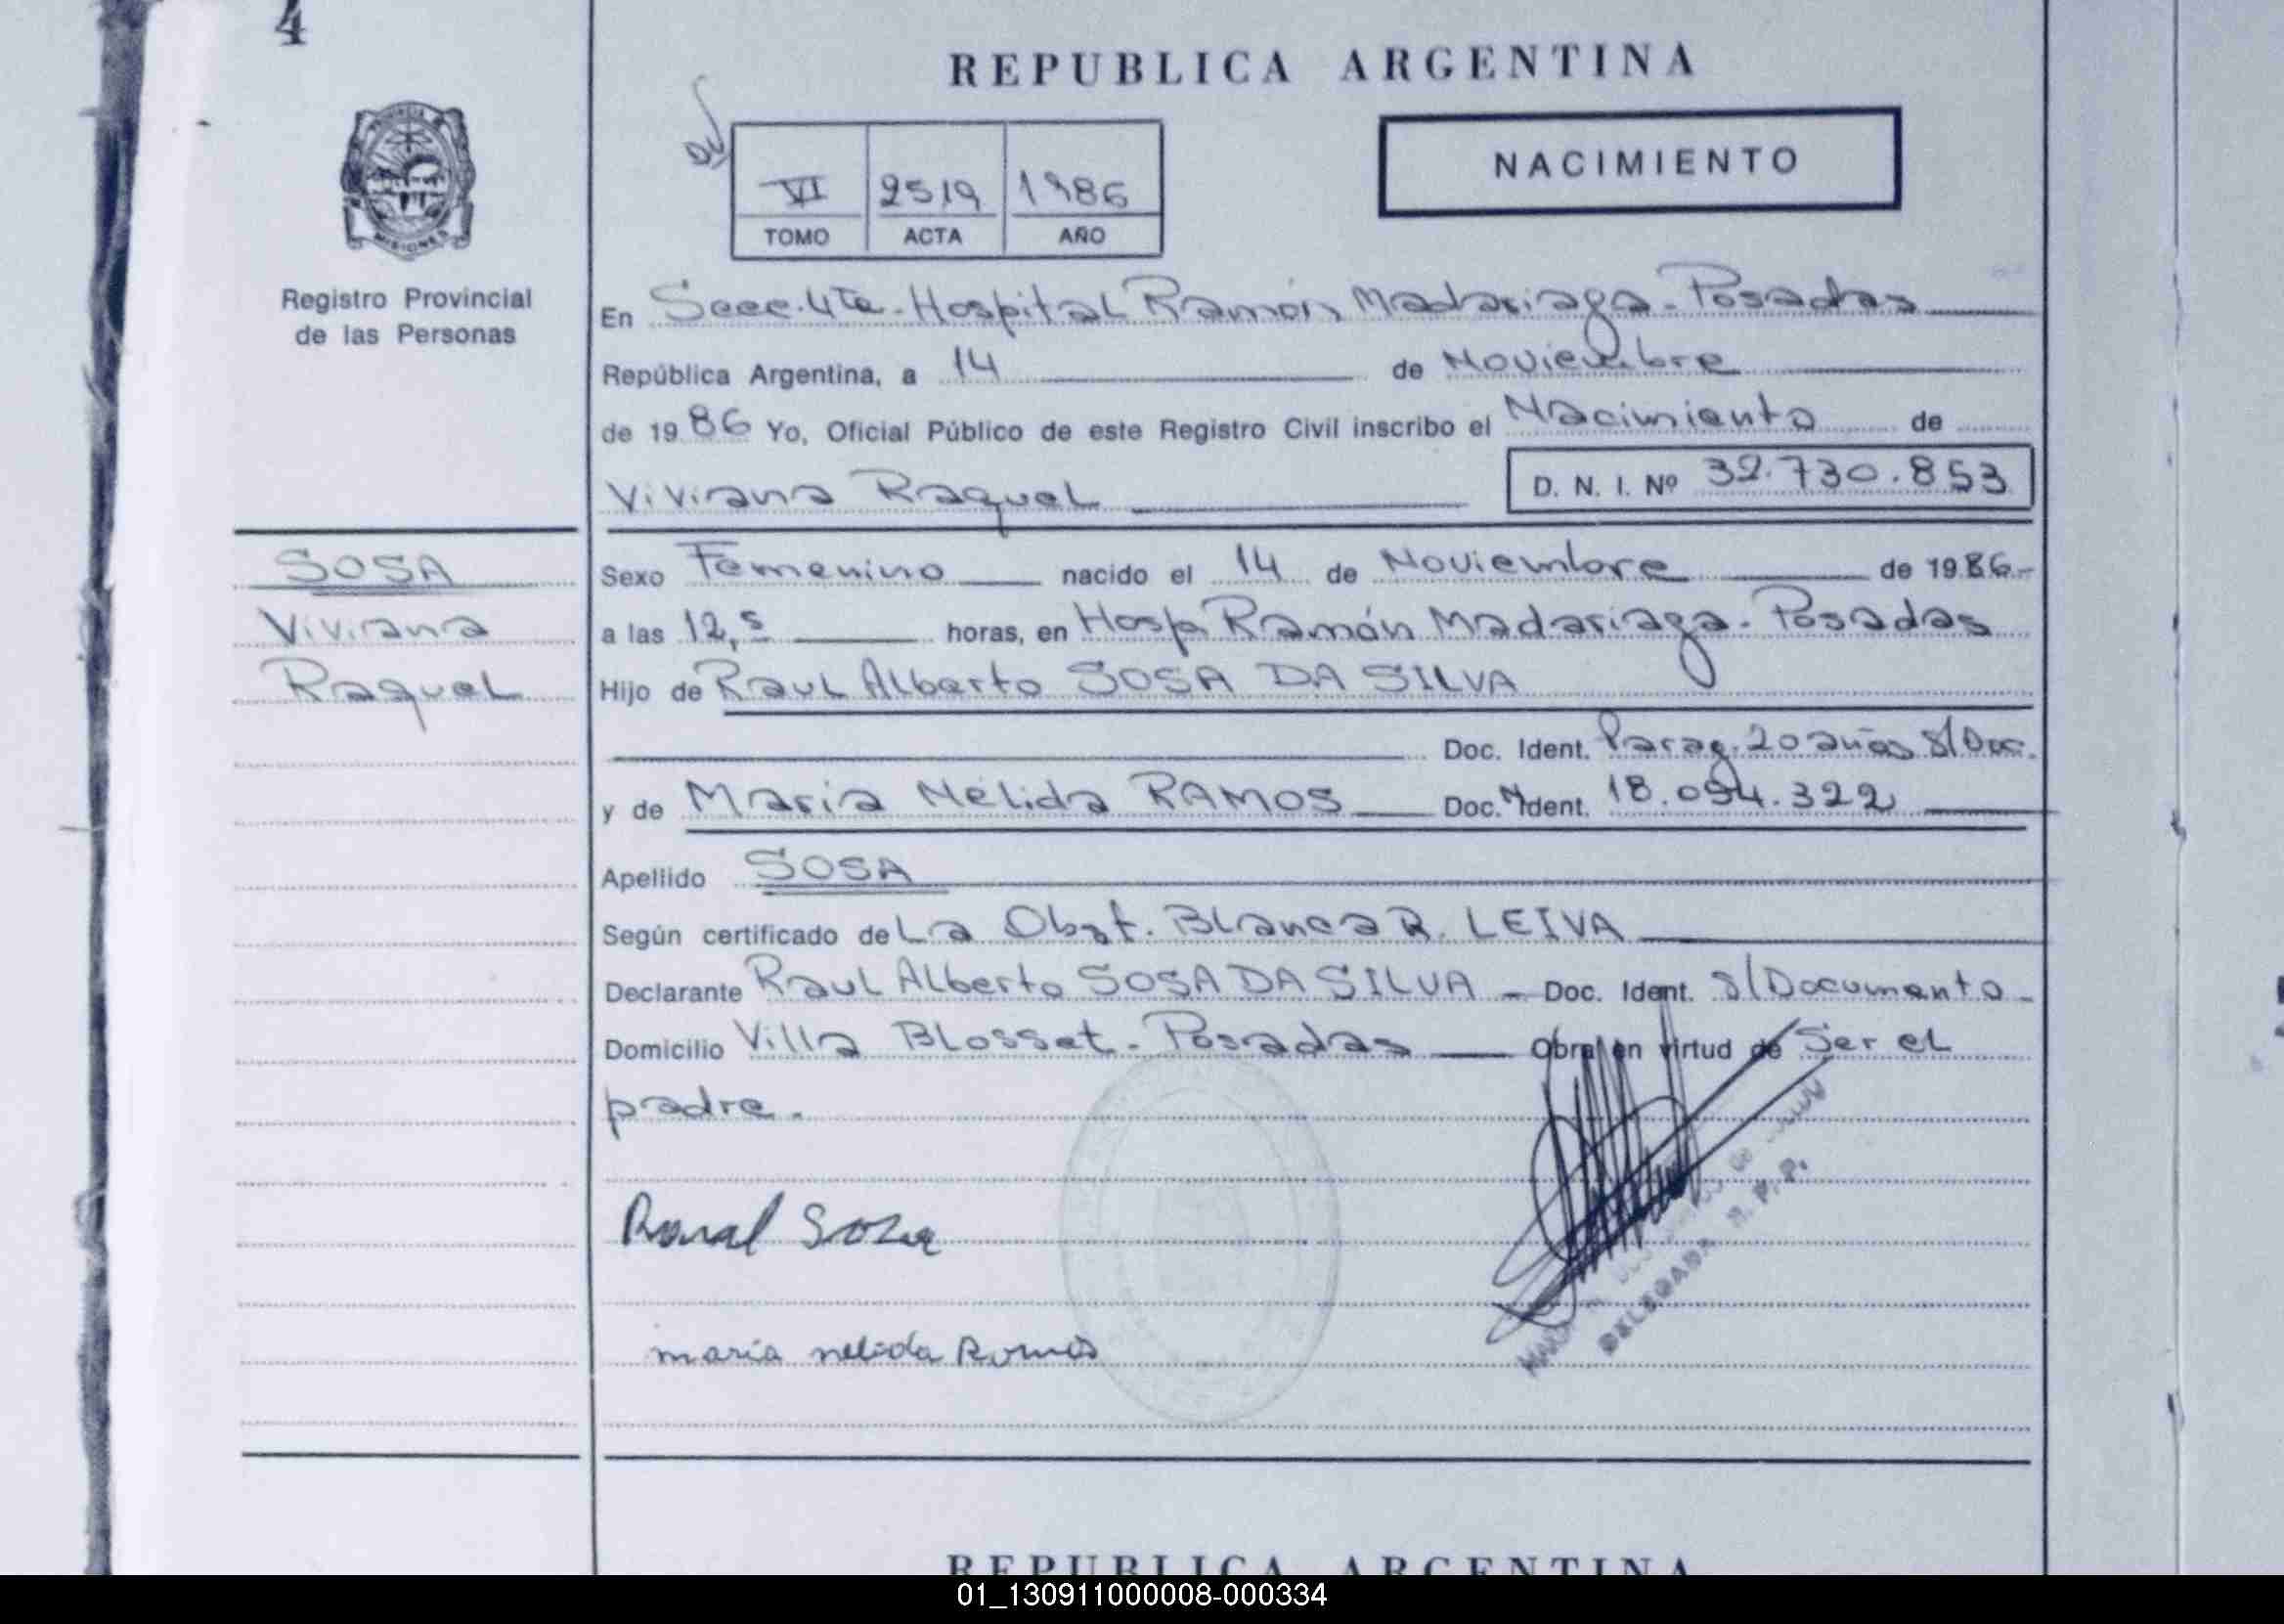 4
REPUBLICA ARGENTINA
PROVINCIA
MISIONES
Registro Provincial
de las Personas
VI 2519 1986
TOMO ACTA AÑO
NACIMIENTO
En Secc. 4ta. Hospital Ramón Madariaga - Posadas
República Argentina, a 14 de Noviembre
de 1986 Yo, Oficial Público de este Registro Civil inscribo el Nacimiento de
Viviana Raquel D. N. I. Nº 32.730.853
SOSA
Viviana
Raquel
Sexo Femenino nacido el 14 de Noviembre de 1986-
a las 12,5 horas, en Hosp Ramón Madariaga - Posadas
Hijo de Raul Alberto SOSA DA SILVA
Doc. Ident. Parag. 20 años S/Doc.
y de Maria Nélida RAMOS Doc. Ident. 18.094.322
Apellido SOSA
Según certificado de La Obst. Blanca R. LEIVA
Declarante Raul Alberto SOSA DA SILVA - Doc. Ident. S/Documento -
Domicilio Villa Blosset - Posadas Obra en virtud de Ser el
padre.
Sosa
DELEGADA R. P. P.
maria nelida Ramos
REPUBLICA ARGENTINA
01_130911000008-000334